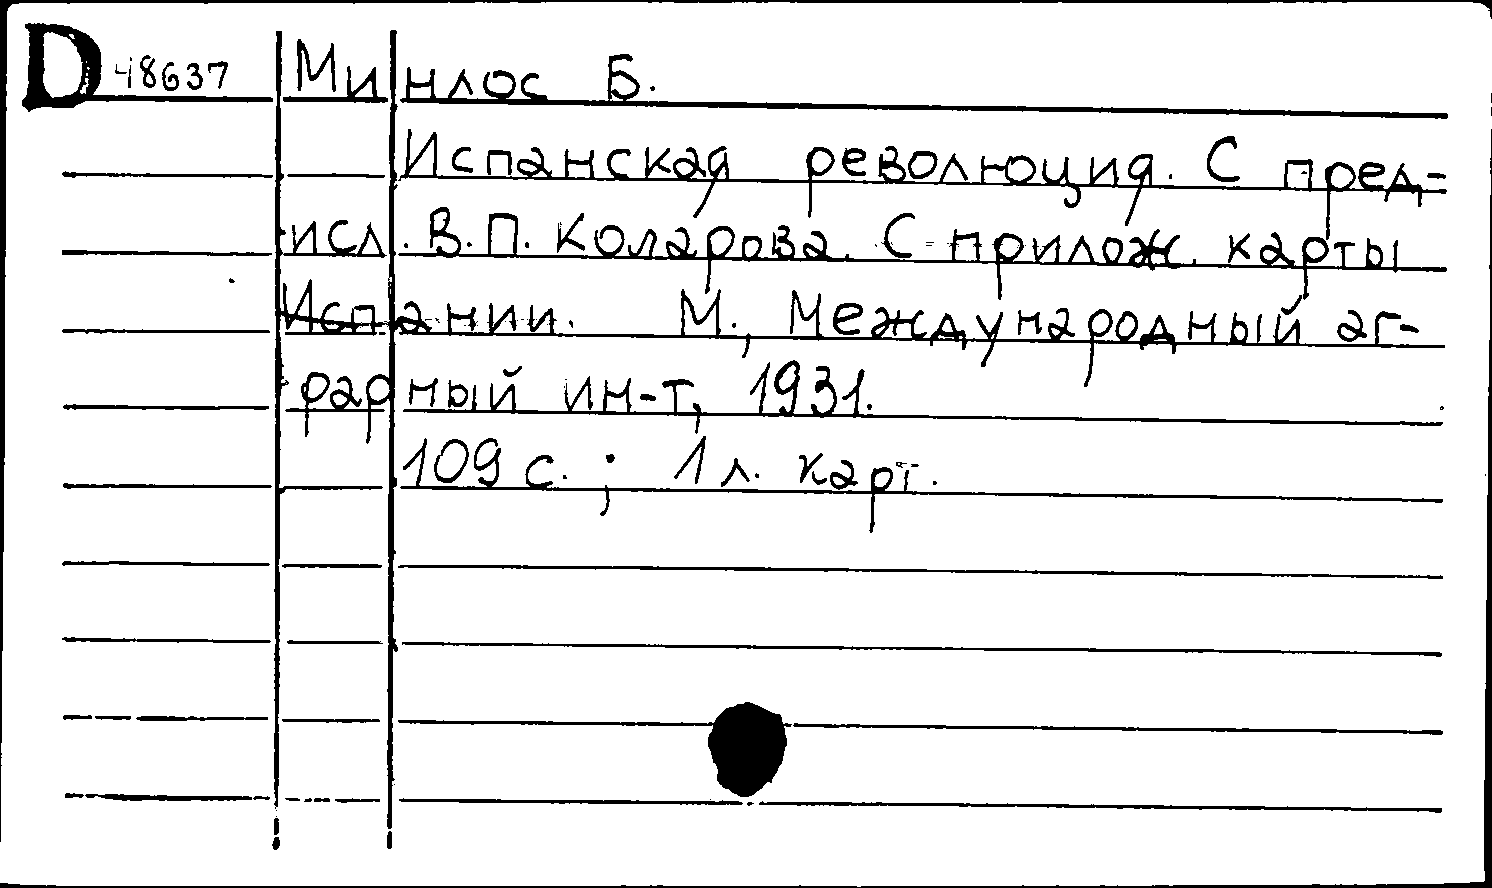 D 48637 Минлос Б.
Испанская революция. С пред-
исл. В.П. Коларова. С прилож. карты
Испании. М., Международный аг-
рарный ин-т, 1931.
109 с. ; 1 л. карт.